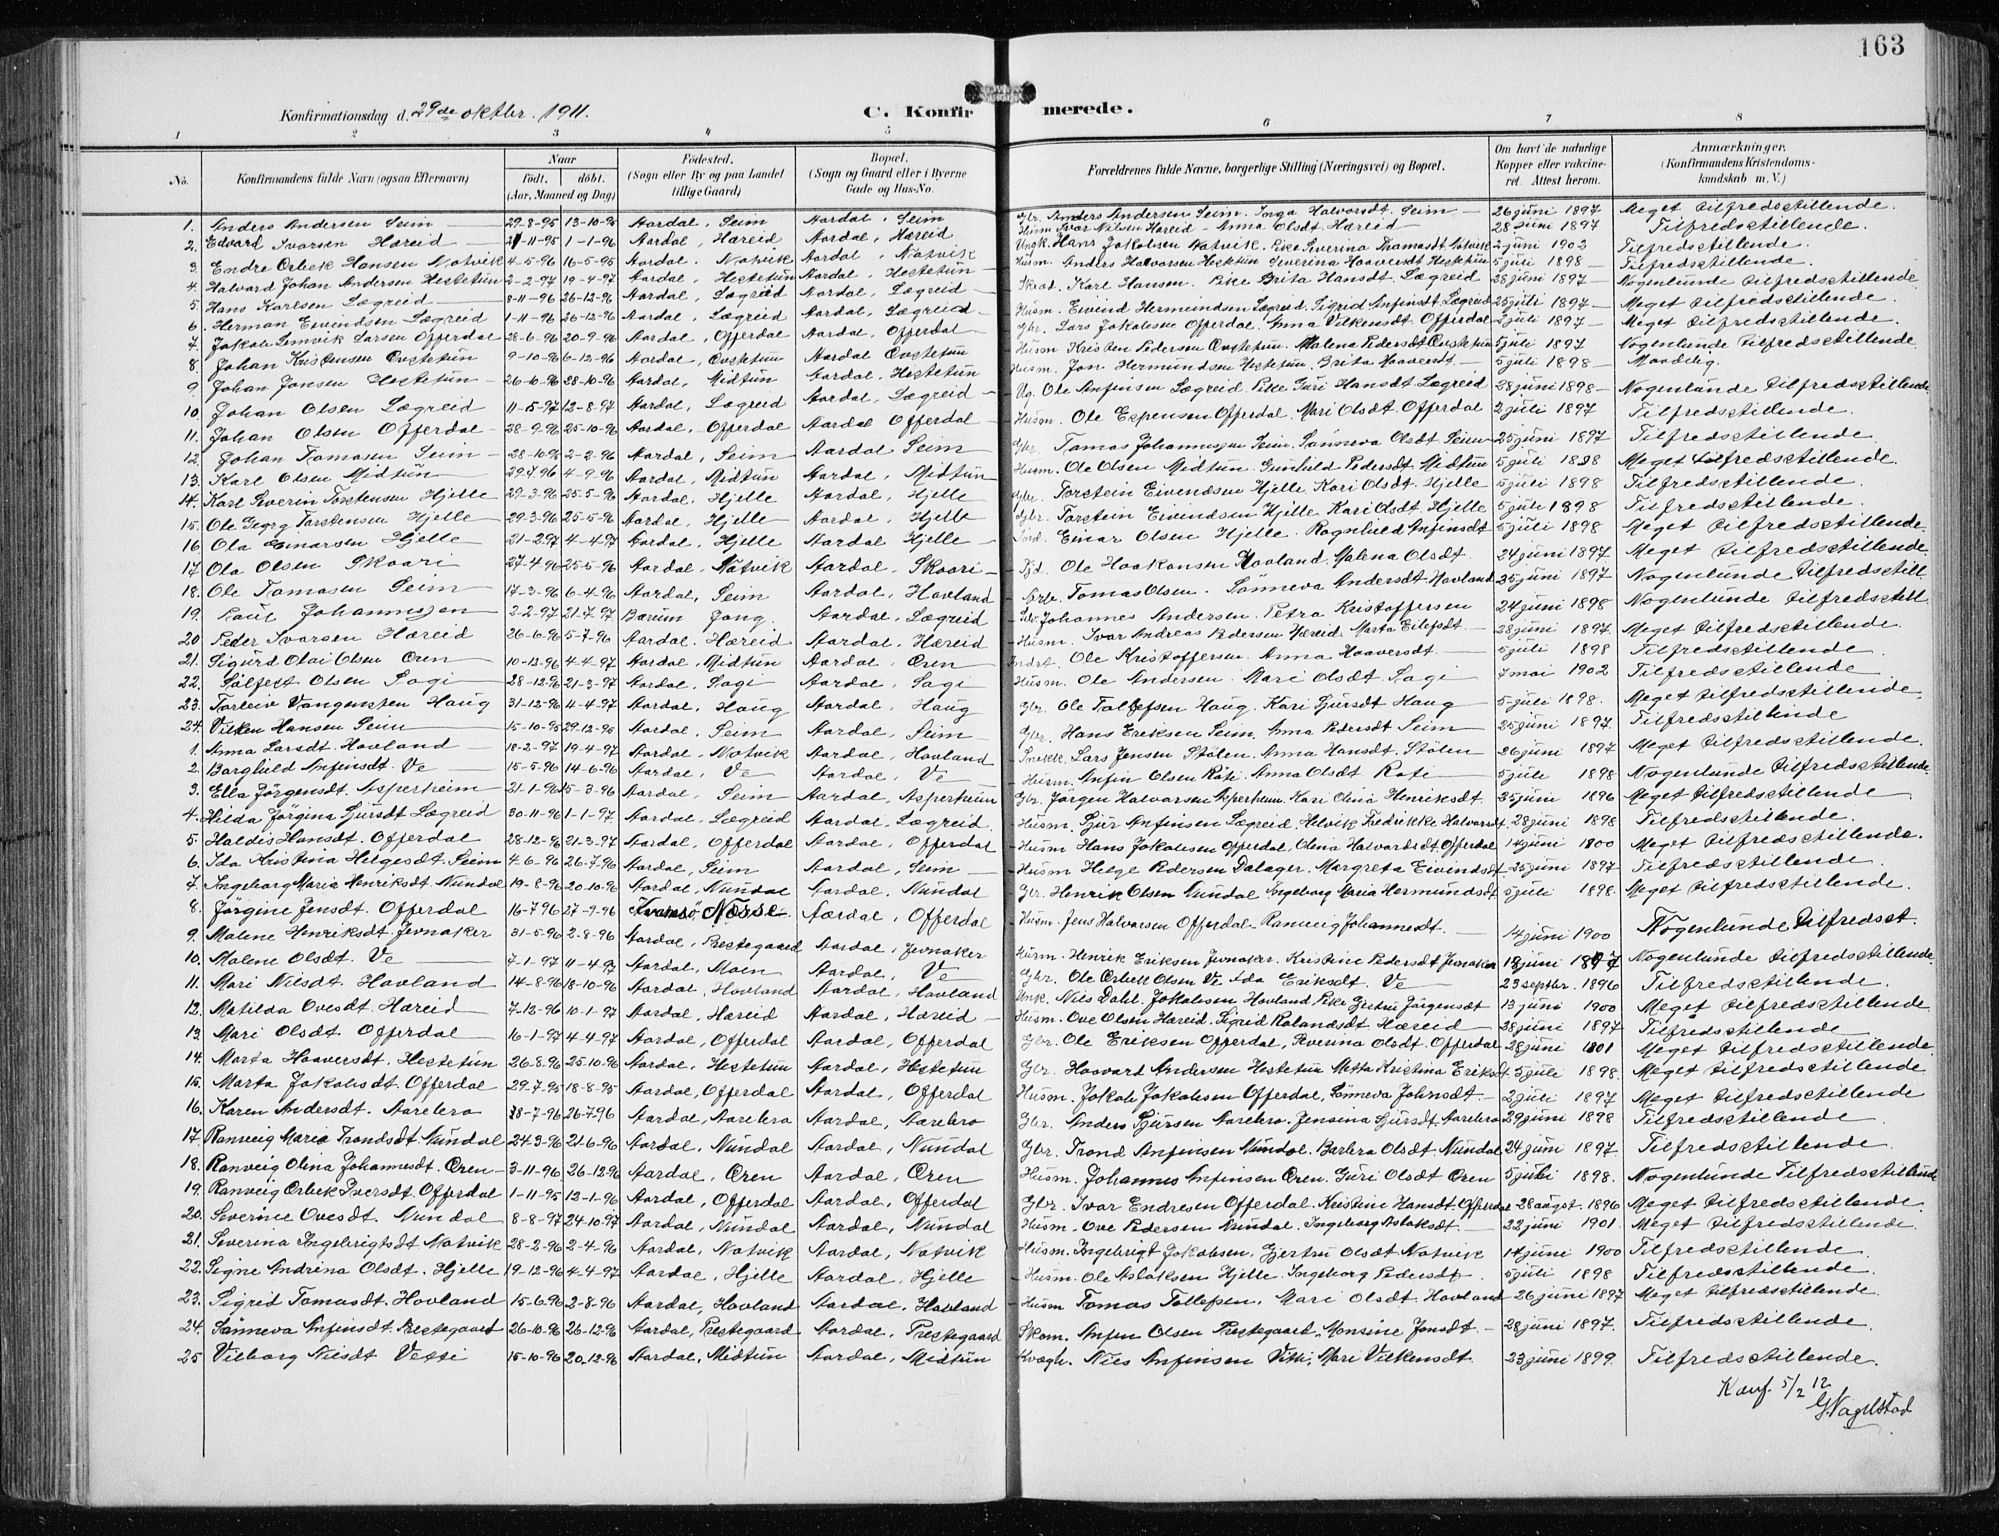 163
Konfirmationsdag d. 29de oktbr. 1911. C. Konfirmerede.
1 2 3 4 5 6 7 8
No. Konfirmandens fulde Navn (ogsaa Efternavn) Naar födt. döbt. (Aar, Maaned og Dag) Födested. (Sogn eller By og paa Landet tillige Gaard) Bopæl. (Sogn og Gaard eller i Byerne Gade og Hus-No. Forældrenes fulde Navne, borgerlige Stilling (Næringsvei) og Bopæl. Om havt de naturlige Kopper eller vakcineret. Attest herom. Anmærkninger. (Konfirmandens Kristendomskundskab m. V.)
1. Anders Andersen Seim 29-8-95 13-10-95 Aardal, Seim Aardal, Seim Gbr. Anders Andersen Seim. Inga Halvorsdt. Seim 26 juni 1897 Meget tilfredsstillende.
2. Edvard Ivarsen Hæreid 21-11-95 1-1-96 Aardal, Hæreid Aardal, Hæreid Husm Ivar Nilsen Hæreid - Anna Olsdt Hæreid 28 juni 1897 Tilfredsstillende.
3. Endre Orbek Hansen Natvik 4-5-96 16-5-95 Aardal, Natvik Aardal, Natvik Ungk. Hans Jakobsen Natvik. Pike Severina Thomasdt. Natvik 2 juni 1902 Tilfredsstillende.
4. Halvard Johan Andersen Hestetun 2-2-97 19-4-97 Aardal, Hestetun Aardal, Hestetun Husm. Anders Halvorsen Hestetun Severina Haaversdt Hestetun 5 juli 1898 Tilfredsstillende.
5. Hans Karlsen Lægreid 8-11-96 26-12-96 Aardal, Lægreid Aardal, Lægreid Karl Hansen. Pike Brita Hansdt. Lægreid 28 juni 1897 Nogenlunde tilfredsstillende
6. Herman Eivindsen Lægreid 1-11-96 26-12-96 Aardal, Lægreid Aardal, Lægreid Husm. Eivind Hermundsen Lægreid. Sigrid Anfinsdt. Lægreid 25 juli 1897 Meget tilfredsstillende.
7. Jakob Lemvik Larsen Offerdal 28-6-96 20-9-96 Aardal, Offerdal Aardal, Offerdal Gbr. Lars Jakobsen Offerdal. Anna Vilkensdt. Offerdal 2 juli 1897 Meget tilfredsstillende.
8. Johan Kristensen Ovstetun 9-10-96 6-12-96 Aardal, Ovstetun Aardal Ovstetun Husm. Kristen Pedersen Ovstetun. Malena Pedersdt Ovstetun 5 juli 1897 Nogenlunde tilfredsstillende.
9. Johan Jonsen Hestetun 26-10-96 28-10-96 Aardal, Midtun Aardal, Hestetun Husm. Jon Hermundsen Hestetun. Brita Haaversdt 5 juli 1898 Maadelig.
10. Johan Olsen Lægreid 11-5-97 12-8-97 Aardal, Lægreid Aardal, Lægreid Ug. Ole Anfinsen Lægreid. Pike Guri Hansdt Lægreid 28 juni 1898 Nogenlunde tilfredsstillende.
11. Johan Olsen Offerdal 28-9-96 25-10-96 Aardal, Offerdal Aardal Offerdal Husm. Ole Espensen Offerdal. Mari Olsdt. Offerdal 2 juli 1897 Tilfredsstillende.
12. Johan Tomasen Seim 28-10-96 2-2-96 Aardal, Seim Aardal Seim Gbr. Tomas Johannessen Seim. Sønneva Olsdt Seim 25 juni 1897 Tilfredsstillende.
13. Karl Olsen Midtun 29-7-96 4-9-96 Aardal, Midtun Aardal, Midtun Husm. Ole Olsen Midtun. Gunhild Pedersdt Midtun 5 juli 1898 Meget tilfredsstillende.
14. Karl Severin Torstensen Hjelle 29-3-96 25-5-96 Aardal, Hjelle Aardal, Hjelle Gbr. Torstein Eivendsen Hjelle. Kari Olsdt. Hjelle 5 juli 1898 Tilfredsstillende.
15. Ole Georg Torstensen Hjelle 29-3-96 25-5-96 Aardal, Hjelle Aardal, Hjelle Gbr. Torstein Eivendsen Hjelle. Kari Olsdt. Hjelle 5 juli 1898 Tilfredsstillende.
16. Ola Einarsen Hjelle 21-2-97 4-4-97 Aardal, Hjelle Aardal Hjelle Einar Olsen Hjelle. Ragnhild Anfinsdt 5 juli 1898 Meget tilfredsstillende.
17. Ola Olsen Skaari 27-4-96 25-5-96 Aardal, Natvik Aardal, Skaari Ole Haakonsen Hovland. Malena Olsdt. 24 juni 1897 Meget tilfredsstillende.
18. Ole Tomasen Seim 17-3-96 6-4-96 Aardal, Seim Aardal, Hovland Tomas Olsen. Sønneva Andersdt Hovland 25 juni 1897 Nogenlunde tilfredsstill.
19. Paul Johannessen 2-2-97 21-7-97 Bærum Jong. Aardal, Lægreid Johannes Andersen. Petra Kristoffersen 24 juni 1898 Nogenlunde tilfredsstill.
20. Peder Ivarsen Hæreid 26-6-96 5-7-96 Aardal, Hæreid Aardal, Hæreid Husm. Ivar Andreas Pedersen Hæreid. Marta Eilefsdt 28 juni 1897 Meget tilfredsstillende.
21. Sigurd Olai Olsen Øren 10-12-96 4-4-97 Aardal, Midtun Aardal, Øren Ole Kristoffersen. Anna Haaversdt 5 juli 1898 Tilfredsstillende.
22. Sølfest Olsen Sagi 28-12-96 21-3-97 Aardal, Sagi Aardal, Sagi Husm. Ole Andersen. Mari Olsdt Sagi 7 mai 1902 Tilfredsstillende
23. Torleiv Vangensten Haug 31-12-96 4-4-97 Aardal, Haug Aardal, Haug Gbr. Ole Tollefsen Haug. Kari Sjursdt Haug 5 juli 1898. Meget tilfredsstillende
24. Vilken Hansen Seim 15-10-95 29-12-95 Aardal, Seim Aardal, Seim Gbr. Hans Eriksen Seim. Anna Pedersdt Seim 25 juni 1897. Tilfredsstillende
1. Anna Larsdt. Hovland 18-2-97 19-4-97 Aardal, Natvik Aardal, Hovland Snekk. Lars Jensen Stölen. Anna Hansdt. Stölen 26 juni 1897 Meget tilfredsstillende.
2. Borghild Anfinsdt. Ve 15-5-96 14-6-96 Aardal, Ve Aardal, Ve Husm. Anfin Olsen Røte. Anna Olsdt Røte 5 juli 1898 Nogenlunde tilfredsstillende.
3. Ella Jörgensdt. Asperheim 21-1-96 15-3-96 Aardal, Seim Aardal, Asperheim Gbr. Jörgen Halvorsen Asperheim. Kari Olina Henriksdt. 25 juni 1896 Meget tilfredsstillende
4. Hilda Jörgina Sjursdt Lægreid 30-11-96 1-1-97 Aardal, Lægreid Aardal, Lægreid Husm. Sjur Anfinsen Lægreid. Helvik Fredrikke Halvorsdt. 28 juni 1898 Tilfredsstillende.
5. Haldis Hansdt. Offerdal 28-12-96 21-3-97 Aardal, Offerdal Aardal, Offerdal Husm Hans Jakobsen Offerdal, Olena Halvorsdt. Offerdal 14 juni 1800 Meget tilfredsstillende.
6. Ida Kristina Helgesdt. Seim 4-6-96 26-7-96 Aardal, Seim Aardal, Seim Husm Helge Pedersen Dalager. Margreta Eivendsdt 25 juni 1897 Tilfredsstillende
7. Ingeborg Maria Henriksdt. Nundal 19-8-96 20-10-96 Aardal, Nundal Aardal, Nundal Gbr. Henrik Olsen Nundal Ingeborg Maria Hermundsdt 5 juli 1898. Meget tilfredsstillende
8. Jörgine Jensdt. Offerdal 16-7-96 27-9-96 Kvamsö Næsse. Aardal, Offerdal Husm. Jens Halvorsen Offerdal. Ranveig Johannesdt. 14 juni 1900 Nogenlunde tilfredsst.
9. Malene Henriksdt. Jevnaker 31-5-96 2-8-96 Aardal, Prestegaard Aardal, Jevnaker Husm. Henrik Eriksen Jevnaker. Kristine Pedersdt. Jevnaker 18 juni 1897 Nogenlunde tilfredsstillende.
10. Malene Olsdt. Ve 7-1-97 11-4-97 Aardal, Moen Aardal, Ve Gbr. Ole Orbek Olsen Ve. Ida Eriksdt. Ve 23 septbr. 1896 Tilfredsstillende.
11. Mari Nilsdt. Hovland 14-8-96 18-10-96 Aardal, Hovland Aardal, Hovland Unk. Nils Dahl. Jakobsen Hovland. Pike Gjertru Jörgensdt 13 juni 1900 Meget tilfredsstillende
12. Matilda Ovesdt. Hæreid 7-12-96 10-1-97 Aardal, Hæreid Aardal, Hæreid Husm. Ove Olsen Hæreid. Sigrid Rolandsdt Hæreid 28 juni 1897 Tilfredsstillende.
13. Mari Olsdt Offerdal 16-1-97 4-4-97 Aardal, Offerdal Aardal, Offerdal Gbr. Ole Eriksen Offerdal, Severina Olsdt. Offerdal 28 juni 1801 Meget tilfredsstillende.
14. Marta Haaversdt. Hestetun 26-8-96 25-10-96 Aardal, Hestetun Aardal, Hestetun Gbr. Haavard Andersen Hestetun Metta Kristina Eriksdt 5 juli 1898. Meget tilfredsstillende
15. Marta Jakobsdt. Offerdal 29-7-95 18-8-95 Aardal, Offerdal Aardal, Offerdal Husm. Jakob Jakobsen Offerdal, Sönneva Johnsdt. 2 juli 1897 Meget tilfredsstillende
16. Karen Andersdt. Aarebro 18-7-96 26-7-96 Aardal, Aarebro Aardal, Aarebro Gbr. Anders Sjursen Aarebro. Jensina Sjursdt. Aarebro 29 juni 1898 Tilfredsstillende
17. Ranveig Maria Trondsdt Nundal 24-3-96 21-6-96 Aardal, Nundal Aardal, Nundal Gbr. Trond Anfinsen Nundal. Barbra Olsdt Nundal 24 juni 1897 Tilfredsstillende
18. Ranveig Olina Johannesdt. Øren 3-11-96 26-12-96 Aardal, Øren Aardal, Øren Husm. Johannes Anfinsen Øren. Guri Olsdt Øren 5 juli 1898. Nogenlunde Tilfredsstillende
19. Ranveig Orbek Iversdt. Offerdal 1-11-95 12-1-96 Aardal, Offerdal Aardal, Offerdal Gbr. Ivar Endresen Offerdal. Kristine Hansdt. Offerdal 28 aügst. 1896 Meget tilfredsstillende.
20. Severine Ovesdt. Nundal 8-8-97 24-10-97 Aardal, Nundal Aardal, Nundal Husm. Ove Pedersen Nundal. Ingeborg Aslaksdt. 22 juni 1901. Meget tilfredsstillende.
21. Severina Ingebrigtsdt Natvik 28-2-96 2-4-96 Aardal, Natvik Aardal, Natvik Husm. Ingebrigt Jakobsen. Gjertru Olsdt Natvik 14 juni 1900 Tilfredsstillende.
22. Signe Andrina Olsdt. Hjelle 19-12-96 4-4-97 Aardal, Hjelle Aardal, Hjelle Husm. Ole Aslaksen Hjelle. Ingeborg Pedersdt. 5 juli 1898 Tilfredsstillende.
23. Sigrid Tomasdt. Hovland 15-6-96 2-8-96 Aardal, Hovland Aardal, Hovland Husm Tomas Tollefsen, Mari Olsdt. Hovland 26 juni 1897 Meget tilfredsstillende.
24. Sönneva Anfinsdt. Prestegaard 26-10-96 26-12-96 Aardal, Prestegaard Aardal, Prestegaard Skom. Anfin Olsen Prestegaard, Monsine Jonsdt. 28 juni 1897. Tilfredsstillende.
25 Vilborg Nilsdt Vetti 15-10-96 20-12-96 Aardal, Midtun Aardal, Midtun Nils Anfinsen Vetti, Mari Vilkensdt. 23 juni 1899. Tilfredsstillende.
Konf. 5/2 12
G. Nagelstad